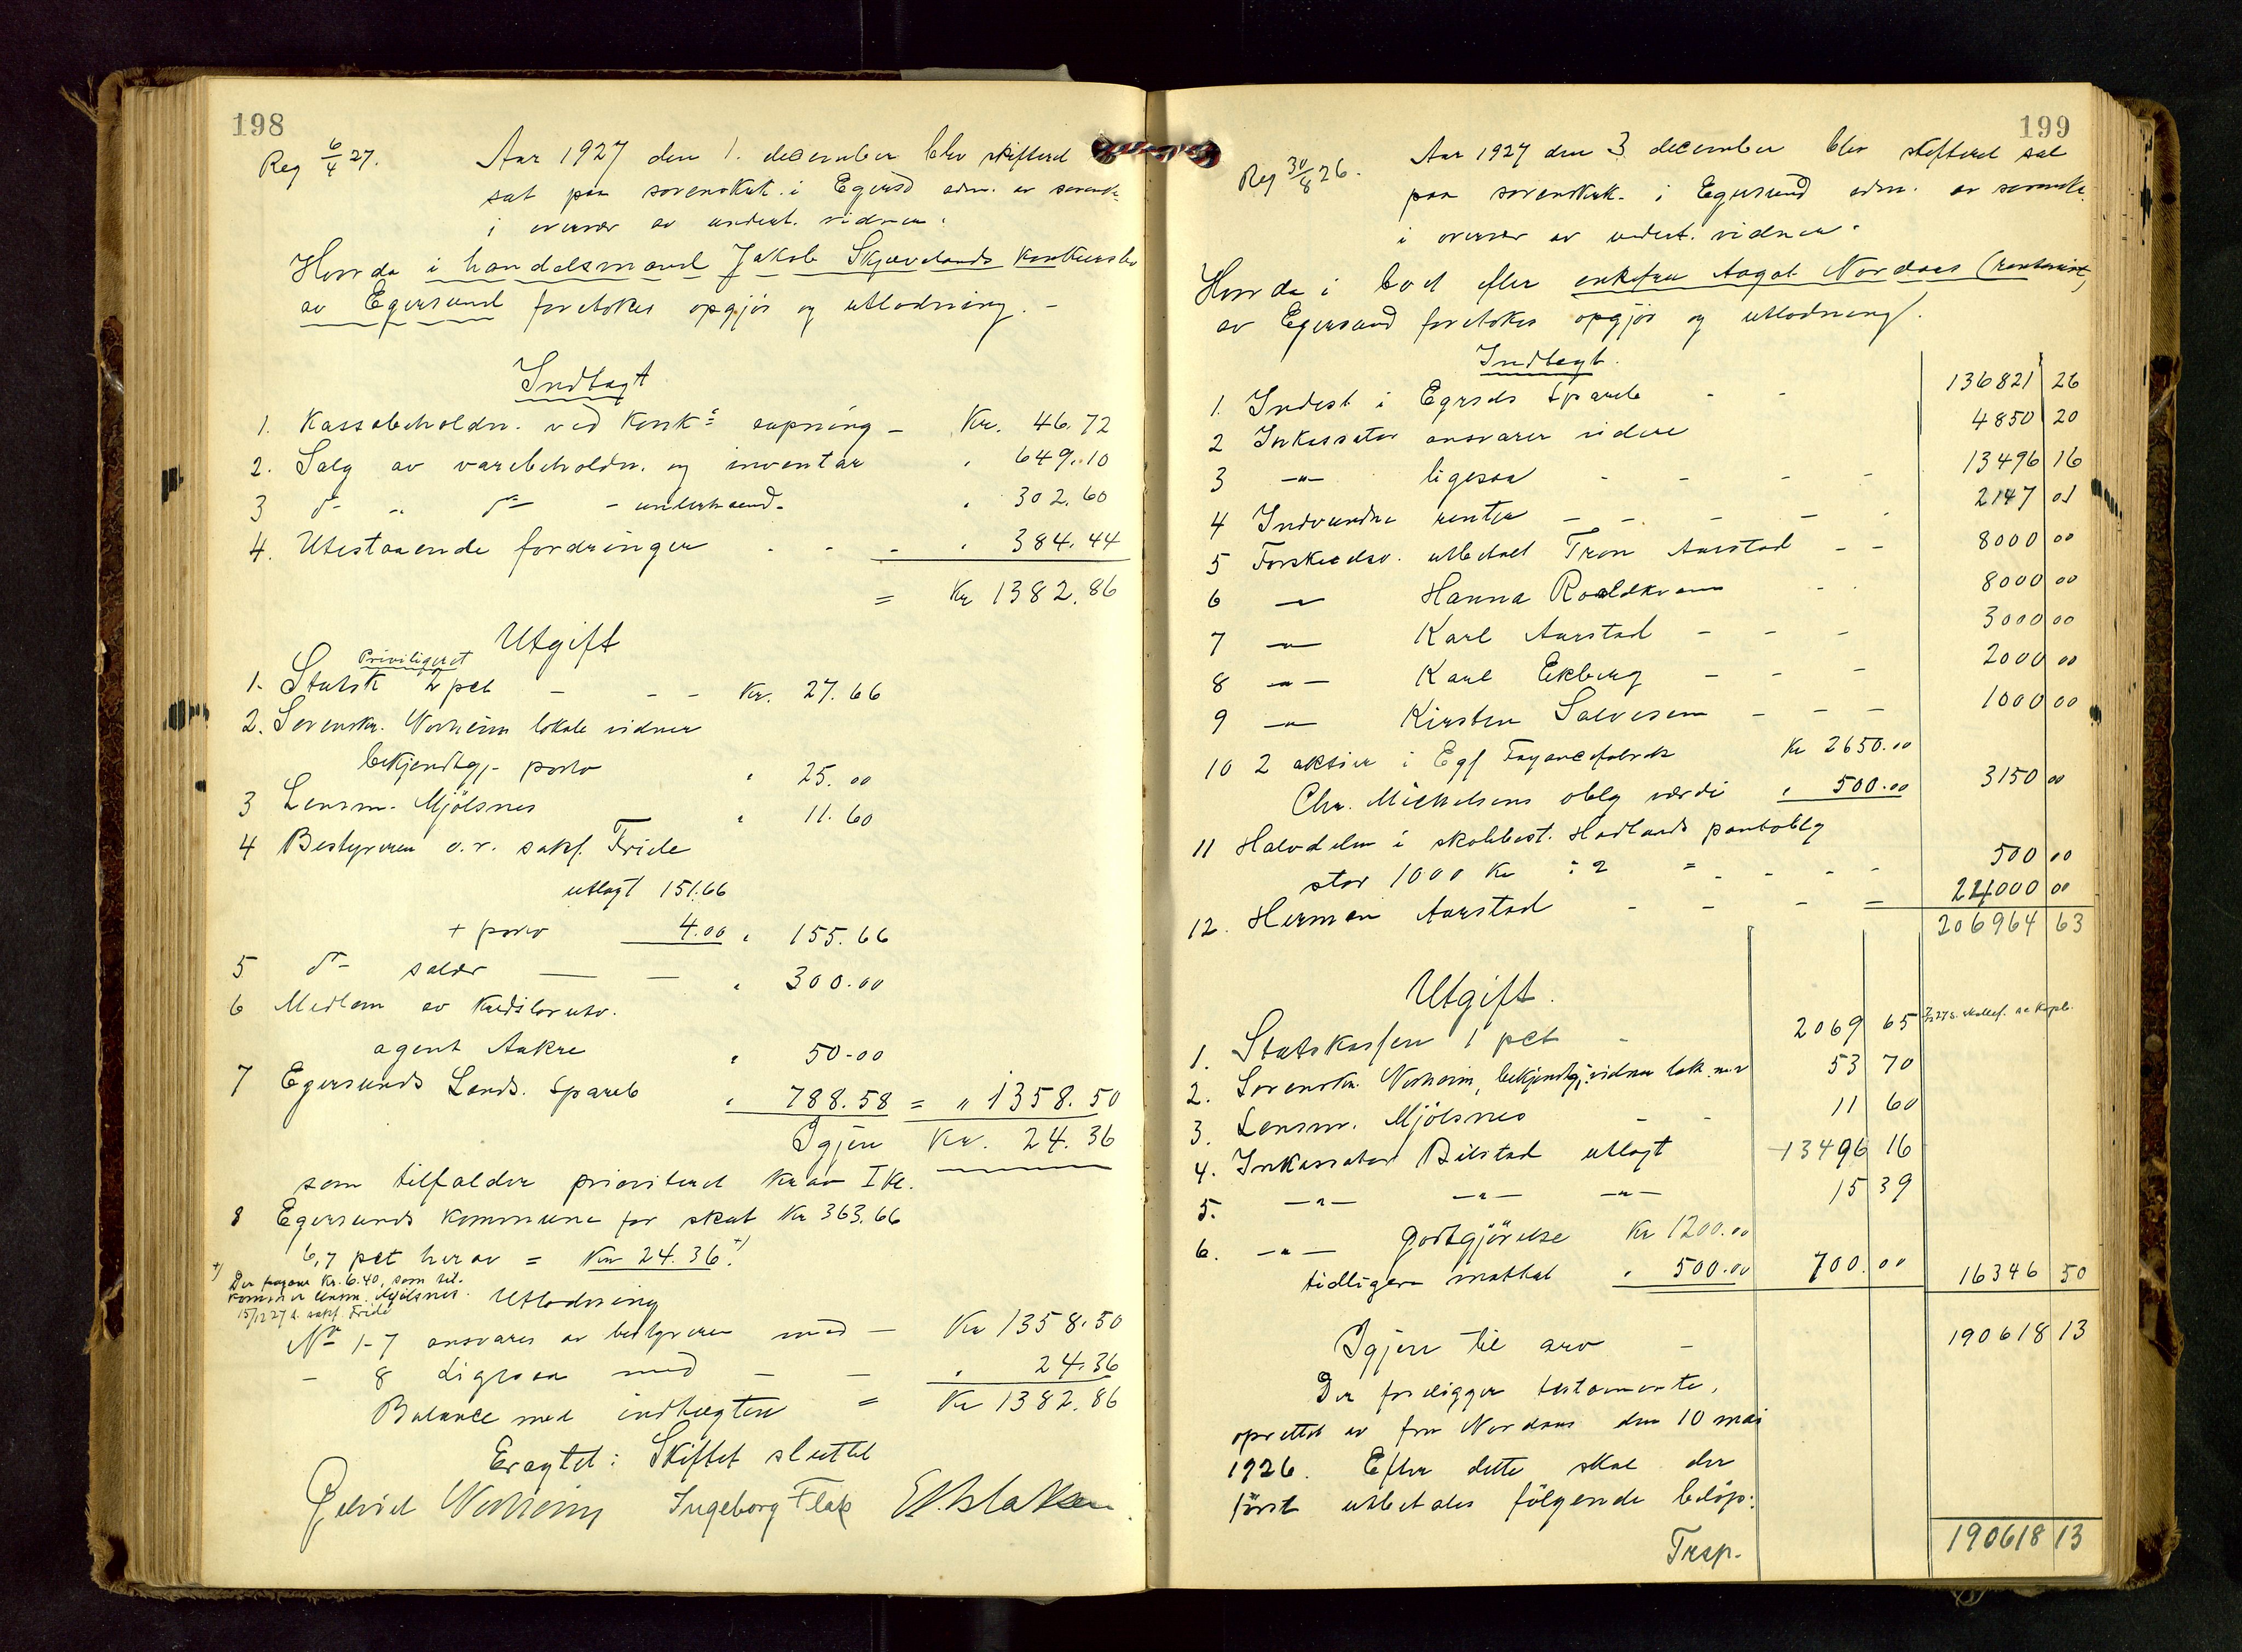 198
Reg 6/4 27.
Aar 1927 den 1. december blev skifteret
sat paa sorenskrk. i Egersd adm. av sorenskr.
i overvær av undert. vidner.
Hvorda i handelsmand Jakob Skjævelands konkursbo
av Egersund foretokes opgjör og utlodning. -
Indtægt
1. Kassabeholdn. ved konk⁠s aapning - Kr. 46.72
2. Salg av varebeholdn. og inventar " 649.10
3 do " do - underhaand. " 302.60
4. Utestaaende fordringer - - - " 384.44
= Kr 1382.86
Utgift
Priviligeret
1. Statsk 2 pct - - - Kr. 27.66
2. Sorenskr. Norheim lokale vidner
bekjendtgj. porto " 25.00
3 Lensm. Mjölsnes " 11.60
4 Bestyreren o.r. sakf. Fride
utlagt 151.66
+ porto 4.00 " 155.66
5 do salær — — " 300.00
6 Medlem av kreditorutv.
agent Aakre " 50.00
7 Egersunds Lands. Spareb " 788.58 = " 1358.50
Igjen Kr. 24.36
som tilfalder prioriteret krav I Kl.
8 Egersunds kommune for skat Kr 363.66
6,7 pct herav = Kr 24.36 +)
+) Der fragaar Kr. 6.40, som til-
kommer lensm. Mjölsnes.
15/12 27 h. sakf. Fride
Utlodning
No 1-7 ansvares av bestyreren med - Kr 1358.50
- 8 Ligesaa med - - " 24.36
Balance med indtægten = Kr 1382.86
Eragtet: Skiftet sluttet
Norheim Ingeborg Flak
199
Reg 30/8 26.
Aar 1927 den 3 december blev skifteret sat
paa sorenskrk. i Egersund adm. av sorenskr.
i overvær av undert. vidner.
Hvorda i boet efter enkefru Aagot Nordaas (rentenist)
av Egersund foretokes opgjör og utlodning.
Indtægt.
1. Indest i Egersds Spareb - - 136821 26
2 Inkassator ansvarer videre 4850 20
3 -"- ligesaa - - - - 13496 16
4 Indvundne renter - - - - 2147 01
5 Forskudsv. utbetalt Tron Aarstad - - 8000 00
6 -"- Hanna Roaldkvam - - 8000 00
7 -"- Karl Aarstad - - - 3000 00
8 -"- Karl Ekberg - - - 2000 00
9 -"- Kirsten Salvesen - - - 1000 00
10 2 aktier i Egs Fayancefabrik Kr 2650.00
Chr. Michelsens oblg værdi " 500.00 3150 00
11 Halvdelen i skolebest. Hadlands pantoblg
stor 1000 Kr : 2 = - - - - 500 00
12. Herman Aarstad - - - = 24000 00
206964 63
Utgift.
1. Statskassen 1 pct - 2069 65
2. Sorenskr. Norheim, bekjendtgj. vidner lok. m.v 53 70
3. Lensm. Mjölsnes - - 11 60
4. Inkassator Bilstad utlagt 13496 16
5. -"- -"- -"- 15 39
6. -"- godtgjörelse Kr 1200.00
tidligere mottat " 500.00 700.00 16346 50
Igjen til arv - 190618 13
Der foreligger testamente,
oprettet av fru Nordaas den 10 mai
1926. Efter dette skal der
först utbetales fölgende belöp:
Trsp. 190618 13